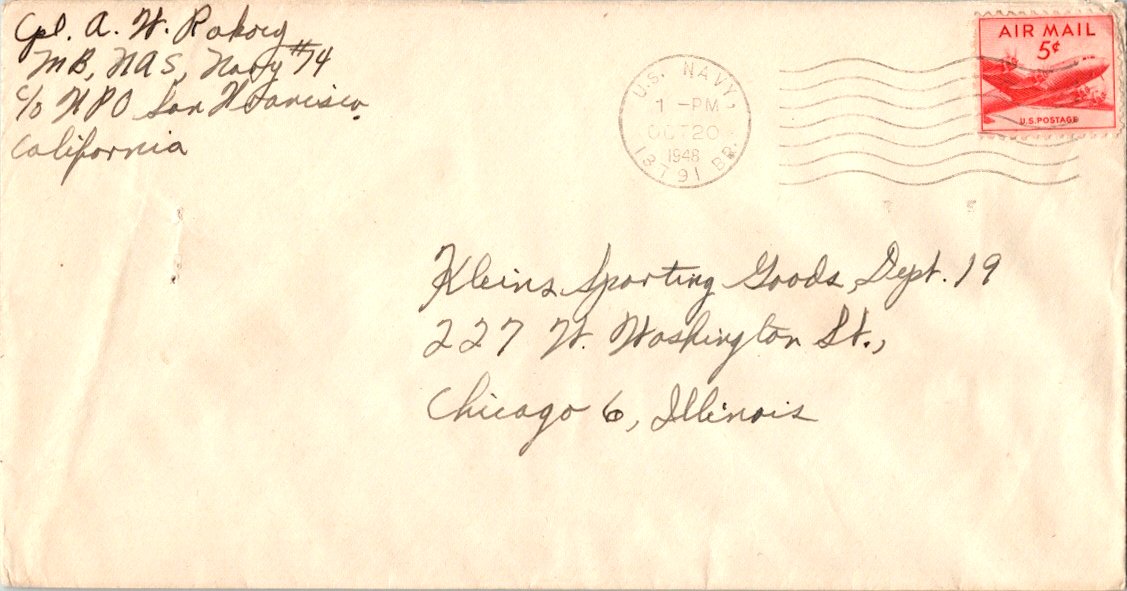 Cpl. A. W. Rokoey
MB, NAS, Navy #74
c/o FPO San Francisco,
California
U.S. NAVY,
1 - PM
OCT 20
1948
13791 BR.
AIR MAIL
5¢
U.S. POSTAGE
Kleins Sporting Goods, Dept. 19
227 W. Washington St.,
Chicago 6, Illinois